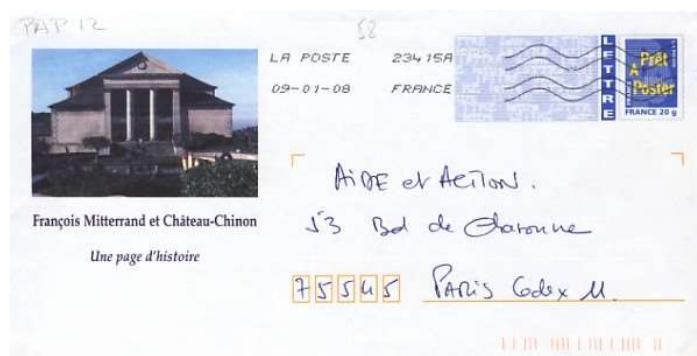 PAP 12
58
LA POSTE 23415A
09-01-08 FRANCE
LETTRE
Prêt
A
Poster
FRANCE 20 g
François Mitterrand et Château-Chinon
Une page d'histoire
AiDE et ACTION.
53 Bd de Charonne
75545 PARIS Cedex 11.